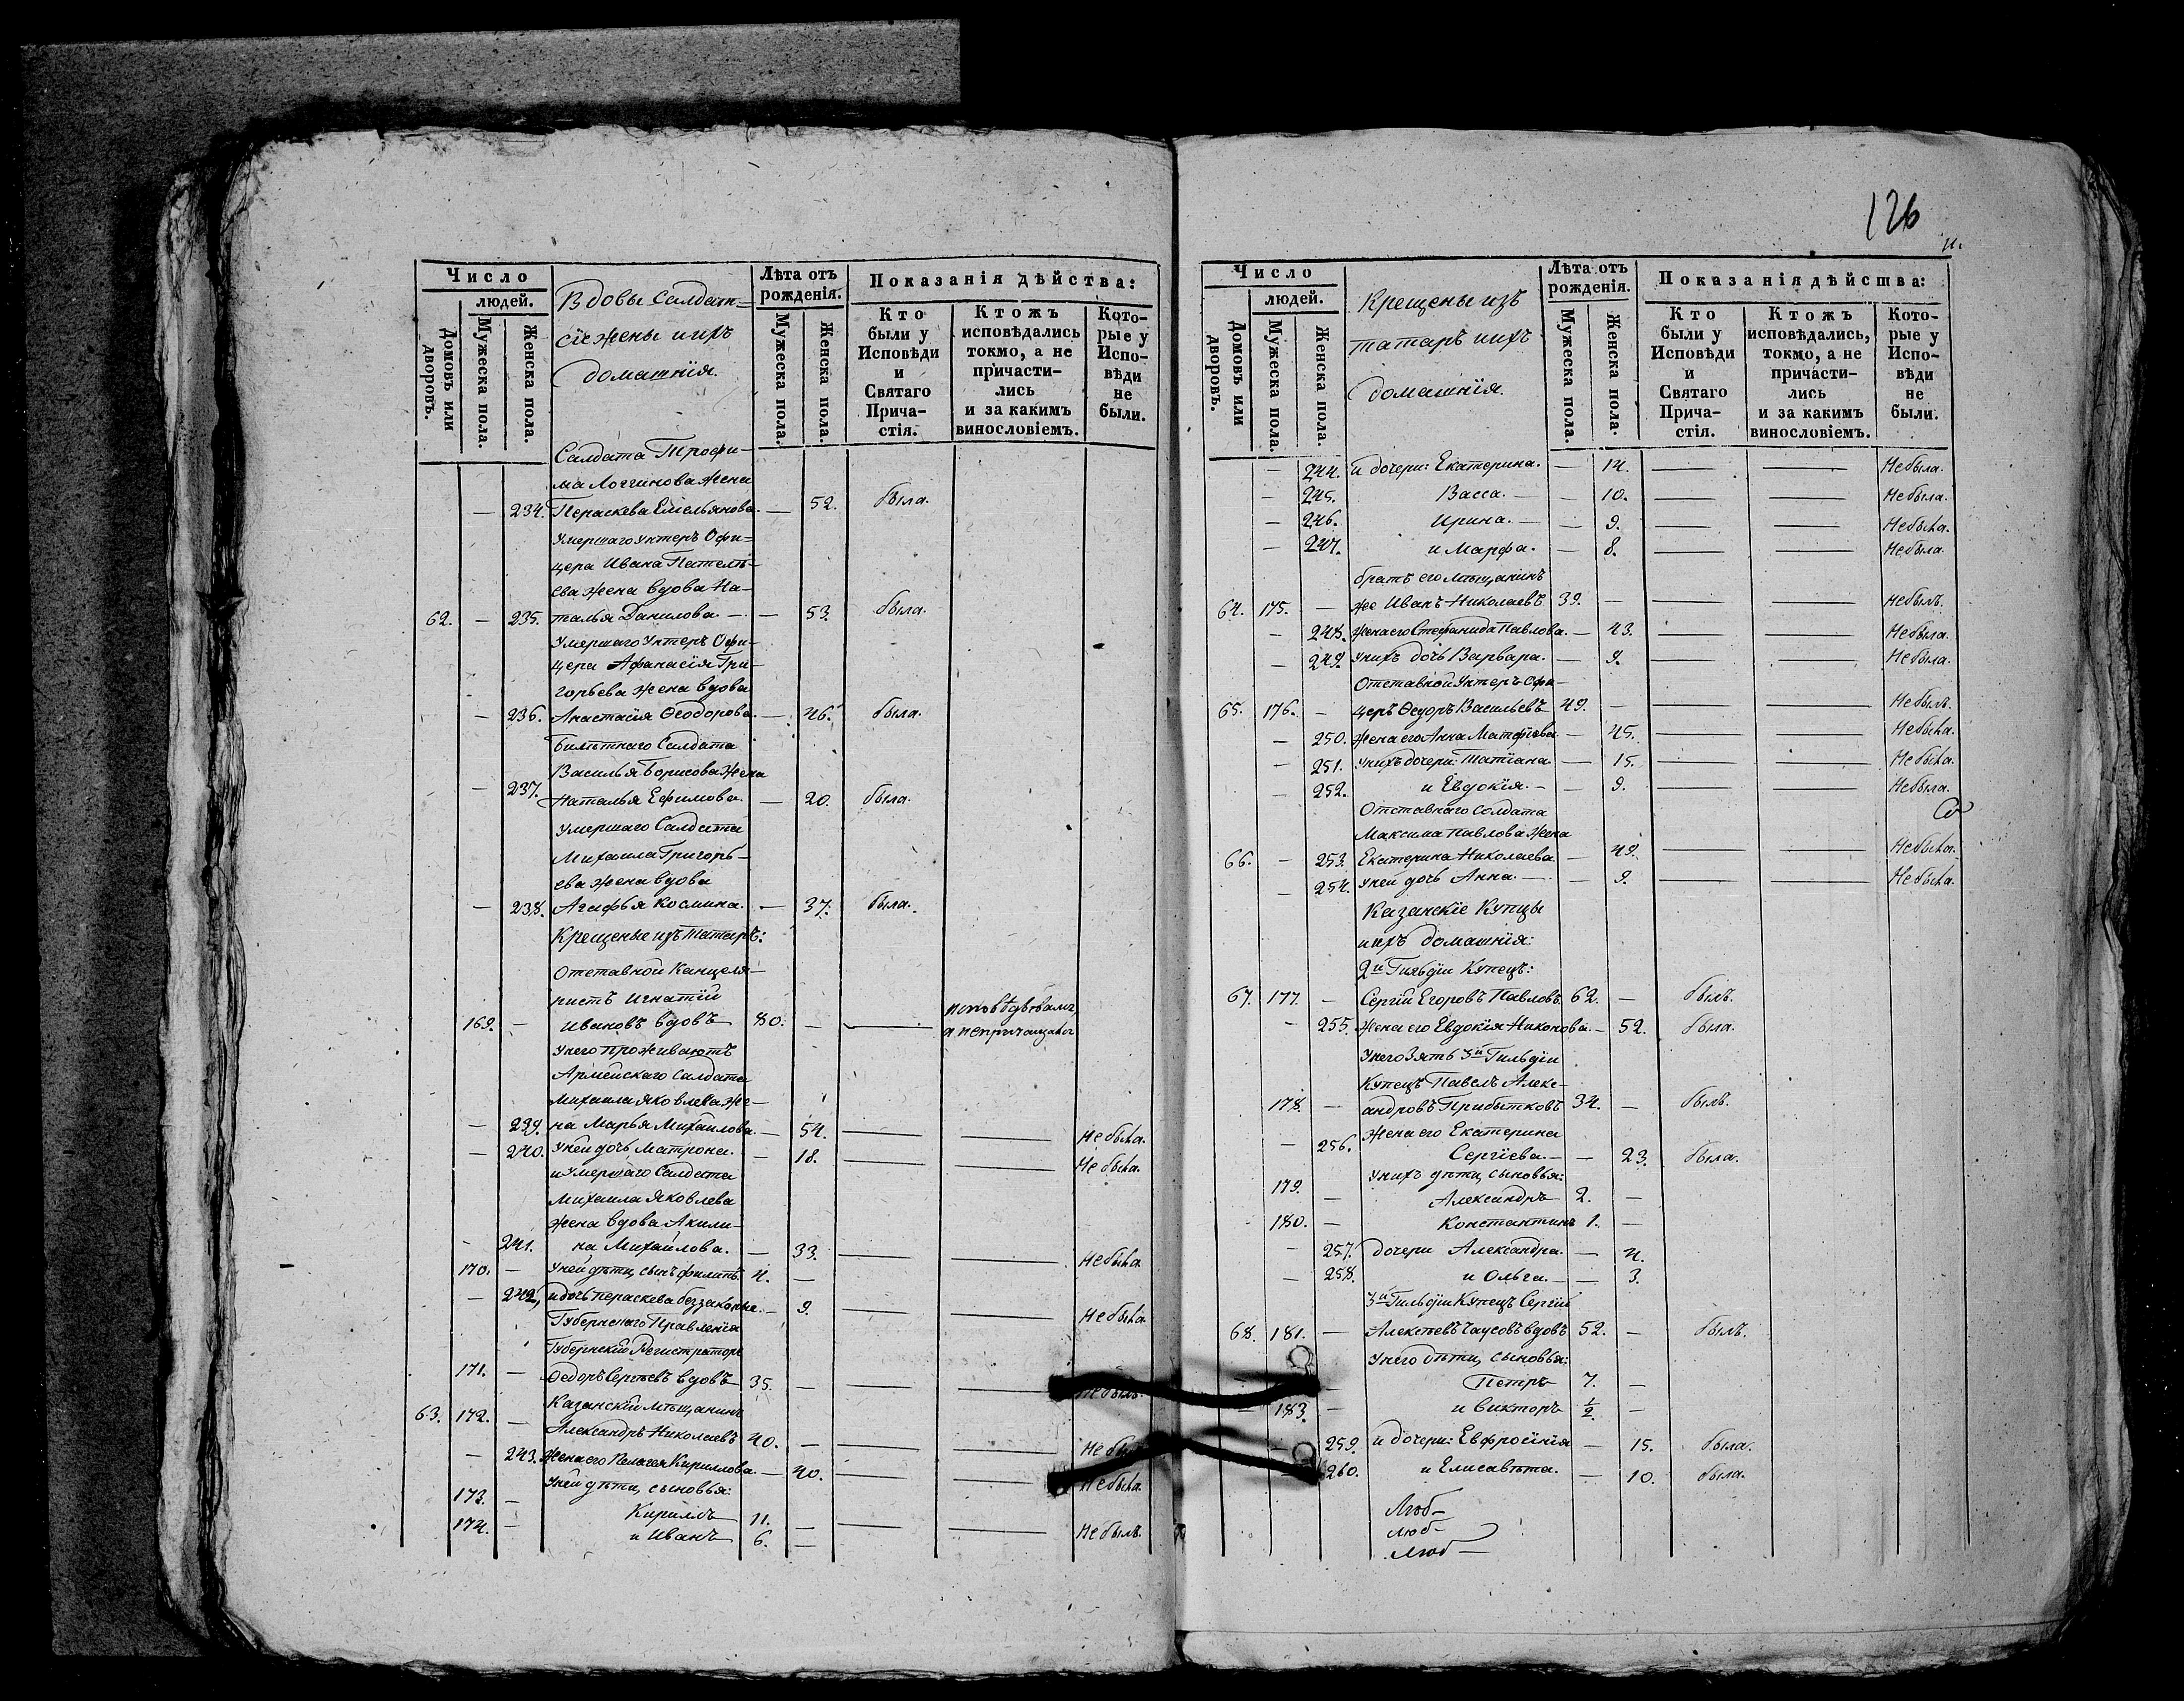 Число
людей.
Домовъ или дворовъ.
Мужеска пола.
Женска пола.
Вдовы Салдат-
скіе жены и ихъ
домашнія.
Лѣта отъ рожденія.
Мужеска пола.
Женска пола.
Показанія дѣйства:
Кто были у Исповѣди и Святаго Причастія.
Ктожъ исповѣдались токмо, а не причастились и за какимъ винословіемъ.
Которые у Исповѣди не были.
Салдата Трофи-
ма Логгинова жена
— 234. Параскева Емельянова. — 52. была.
Умершаго Унтеръ Офи-
цера Ивана Пателѣ-
ева жена вдова На-
62. — 235. талья Данилова — — 53. была.
Умершаго Унтеръ Офи-
цера Афанасія Гри-
горьева жена вдова
— 236. Анастасія Ѳеодорова. — 46. была.
Билѣтнаго Салдата
Василья Борисова жена
— 237. Наталья Ефимова. — 20. была.
Умершаго Салдата
Михаила Григорь-
ева жена вдова
— 238. Агафья Космина. — 37. была.
Крещеные изъ татаръ:
Отставной Канцеля-
ристъ Игнатій
169. — Ивановъ вдовъ 80. — — исповѣдывался, а непричащался
У него проживаютъ
Армейскаго Салдата
Михаила Яковлева же-
— 239. на Марья Михайлова. — 54. — — Небыла.
— 240. У ней дочь Матрона. — 18. — — Небыла.
и Умершаго Салдата
Михаила Яковлева
жена вдова Акили-
— 241. на Михайлова. — 33. — — Небыла.
170. — У ней дѣти, сынъ Филипъ 4. —
— 242, и дочь Параскева беззаконные. — 9. — — Небыла.
Губернскаго Правленія
Губернскій Регистраторъ
171. — Ѳедоръ Сергѣевъ вдовъ 35. — — — Небылъ.
Казанскій мѣщанинъ
63. 172. — Александръ Николаевъ 40. — — — Небылъ.
— 243. Жена его Пелагея Кириллова. — 40. — — Небыла.
У ней дѣти, сыновья:
173. — Кириллъ 11.
174. — и Иванъ 6. — — — Небылъ.
126
Число
людей.
Домовъ или дворовъ.
Мужеска пола.
Женска пола.
Крещены изъ
татаръ и ихъ
домашнія.
Лѣта отъ рожденія.
Мужеска пола.
Женска пола.
Показанія дѣйства:
Кто были у Исповѣди и Святаго Причастія.
Ктожъ исповѣдались, токмо, а не причастились и за какимъ винословіемъ.
Которые у Исповѣди не были.
— 244. и дочери: Екатерина. — 14. — — Небыла.
— 245. Васса. — — 10. — — Небыла.
— 246. Ирина. — — 9. — — Небыла.
— 247. и Марфа. — 8. — — Небыла.
братъ его мѣщанинъ
64. 175. — же Иванъ Николаевъ 39. — — — Небылъ.
— 248. Жена его Стефанида Павлова. — 43. — — Небыла.
— 249. У нихъ дочь Варвара. — 9. — — Небыла.
Отставной Унтеръ Офи-
65. 176. — церъ Ѳедоръ Васильевъ 49. — — — Небылъ.
— 250. Жена его Анна Матфіева. — 45. — — Небыла.
— 251. У нихъ дочери: Татіана — 15. — — Небыла.
— 252. и Евдокія. — — 9. — — Небыла.
Отставнаго Солдата
Максима Павлова жена
66. — 253. Екатерина Николаева. — 49. — — Небыла.
— 254. У ней дочь Анна. — — 9. — — Небыла.
Казанскіе Купцы
и ихъ домашнія:
2й Гильдіи Купецъ:
67. 177. — Сергій Егоровъ Павловъ. 62. — былъ.
— 255. Жена его Евдокія Никонова. — 52. была.
У него зять 3й Гильдіи
Купецъ Павелъ Алекс-
178. — андровъ Прибытковъ 34. — былъ.
Жена его Екатерина
— 256. Сергіева. — — 23. была.
У нихъ дѣти, сыновья:
179. — Александръ 2. —
180. — Константинъ 1. —
— 257. дочери Александра. — 4.
— 258. и Ольга. — — 3.
3й Гильдіи Купецъ Сергій
68. 181. — Алексѣевъ Чаусовъ вдовъ 52. — былъ.
У него дѣти, сыновья:
— Петръ 7. —
— 183. — и Викторъ ½. —
259. и дочери: Евфросинія — 15. была.
260. и Елисавѣта. — 10. была.
Люб-
Люб-
Люб-